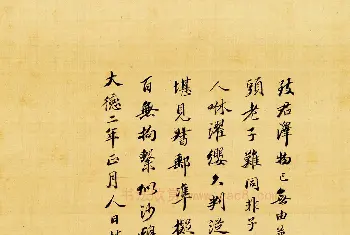 致君澤物已無由
頭老子難同非子
人咻濯纓久判從
堪見督郵準擬
百無拘繫似沙鷗
大德二年正月人日